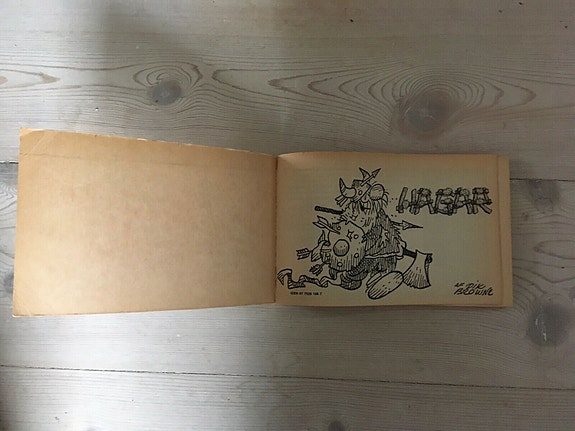 HAGAR
AF DIK
BROWNE